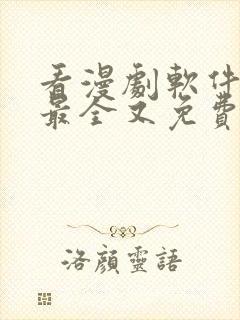 看漫劇軟件
最全又免費
洛顏靈語